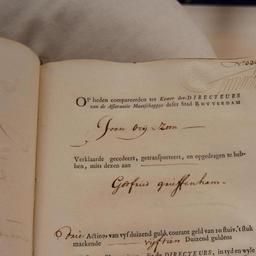 OP heden compareerden ter Kamer der DIRECTEURS
van de Assurantie Maatschappye deser Stad ROTTERDAM
Verklaarde gecedeert, getransporteert, en opgedragen te heb-
ben, mits dezen aan
Gosfried Grieffenham.
Drie Actien van vyf duizend gulds courant geld van 20 stuiv. 't stuk
mackende vyftien Duizend guldens
DIRECTEURS, in tyd en wyle